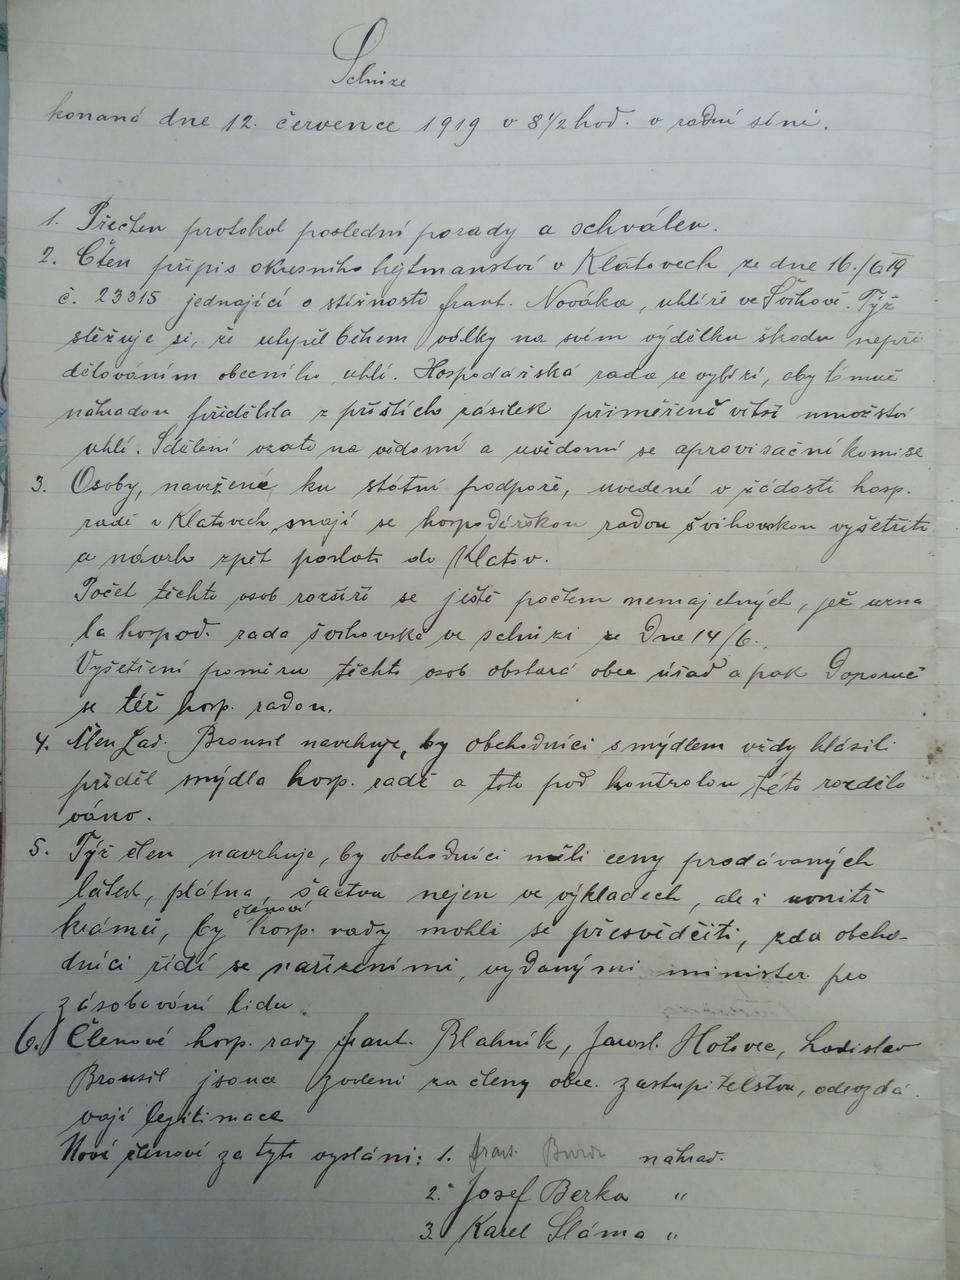 Schůze
konaná dne 12. července 1919 v 8 1/2 hod. v radní síni.
1. Přečten protokol poslední porady a schválen.
2. Čten přípis okresního hejtmanství v Klatovech ze dne 16./6.19
č. 23315 jednající o stížnosti frant. Nováka, uhlíře ve Švihově. Týž
stěžuje si, že utrpěl během války na svém výdělku škodu nepři
dělováním obecního uhlí. Hospodářská rada se vybízí, aby témuž
náhradou přidělila z příštích zásilek přiměřeně větší množství
uhlí. Sdělení vzato na vědomí a uvědomí se aprovisační komise
3. Osoby, navržené ku státní podpoře, uvedené v žádosti hosp.
radě v Klatovech mají se hospodářskou radou švihovskou vyšetřiti
a návrh zpět poslati do Klatov.
Počet těchto osob rozšíří se ještě počtem nemajetných, jež uzna
la hospod. rada švihovská ve schůzi ze dne 14/6.
Vyšetření poměru těchto osob obstará obec. úřad a pak doporučí
se též hosp. radou.
4. Člen Lad. Brousil navrhuje, by obchodníci s mýdlem vždy hlásili
příděl mýdla hosp. radě a toto pod kontrolou této rozdělo
váno.
5. Týž člen navrhuje, by obchodníci měli ceny prodávaných
látek, plátna, šactva nejen ve výkladech, ale i uvnitř
krámů, by členové hosp. rady mohli se přesvědčiti, zda obcho-
dníci řídí se nařízeními, vydanými minister. pro
zásobování lidu.
6.) Členové hosp. rady frant. Blahník, Jarosl. Hotovec, Ladislav
Brousil jsouce zvoleni za členy obec. zastupitelstva, odevzdá
vají legitimace
Noví členové za tyto vysláni: 1. frant. náhrad.
2. Josef Berka "
3. Karel Sláma "